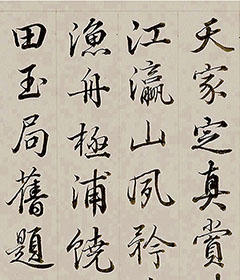 天家定真賞
江瀛山夙矜
漁舟極浦饒
田玉局舊題